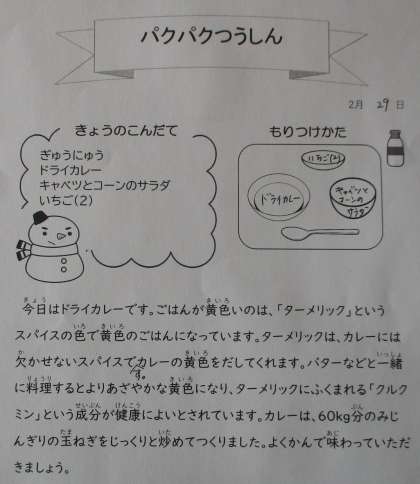 パクパクつうしん
2月 29 日
きょうのこんだて
ぎゅうにゅう
ドライカレー
キャベツとコーンのサラダ
いちご(2)
もりつけかた
いちご(2)
ドライカレー
キャベツと
コーンの
サラダ
今日はドライカレーです。ごはんが黄色いのは、「ターメリック」という
スパイスの色で黄色のごはんになっています。ターメリックは、カレーには
欠かせないスパイスで、カレーの黄色をだしてくれます。バターなどと一緒
に料理するとよりあざやかな黄色になり、ターメリックにふくまれる「クルク
ミン」という成分が健康によいとされています。カレーは、60kg分のみじ
んぎりの玉ねぎをじっくりと炒めてつくりました。よくかんで味わっていただ
きましょう。